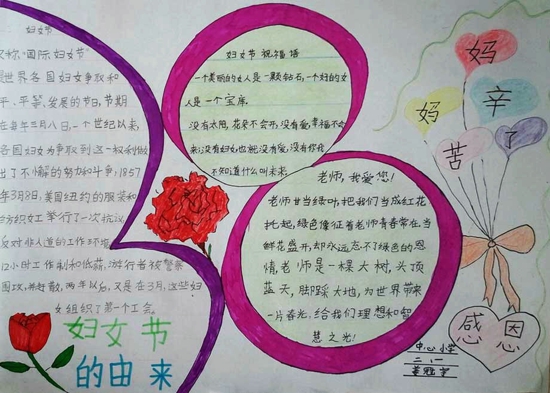 妇女节
又称"国际妇女节"
是世界各国妇女争取和
平、平等、发展的节日,节期
在每年三月八日,一个世纪以来,
各国妇女为争取到这一权利做
出了不懈的努力和斗争,1857
年3月8,美国纽约的服装和
纺织女工举行了一次抗议,
反对非人道的工作环境,
12小时工作制和低薪,游行者被警察
围攻,并赶散,两年以后,又是在3月,这些妇
女组织了第一个工会。
妇女节
的由来
妇女节祝福语
一个美丽的女人是一颗钻石,一个好的女
人是一个宝库。
没有太阳,花朵不会开,没有爱,幸福不会
来,没有妇女,也就没有爱,没有你我
不知道什么叫未来。
老师,我爱您!
老师甘当绿叶,把我们当成红花
托起,绿色像征着老师青春常在,当
鲜花盛开,却永远忘不了绿色的恩
情,老师是一棵大树,头顶
蓝天,脚踩大地,为世界带来
一片春光,给我们理想和智
慧之光!
妈
妈
辛
苦
了
感恩
中心小学
二、一